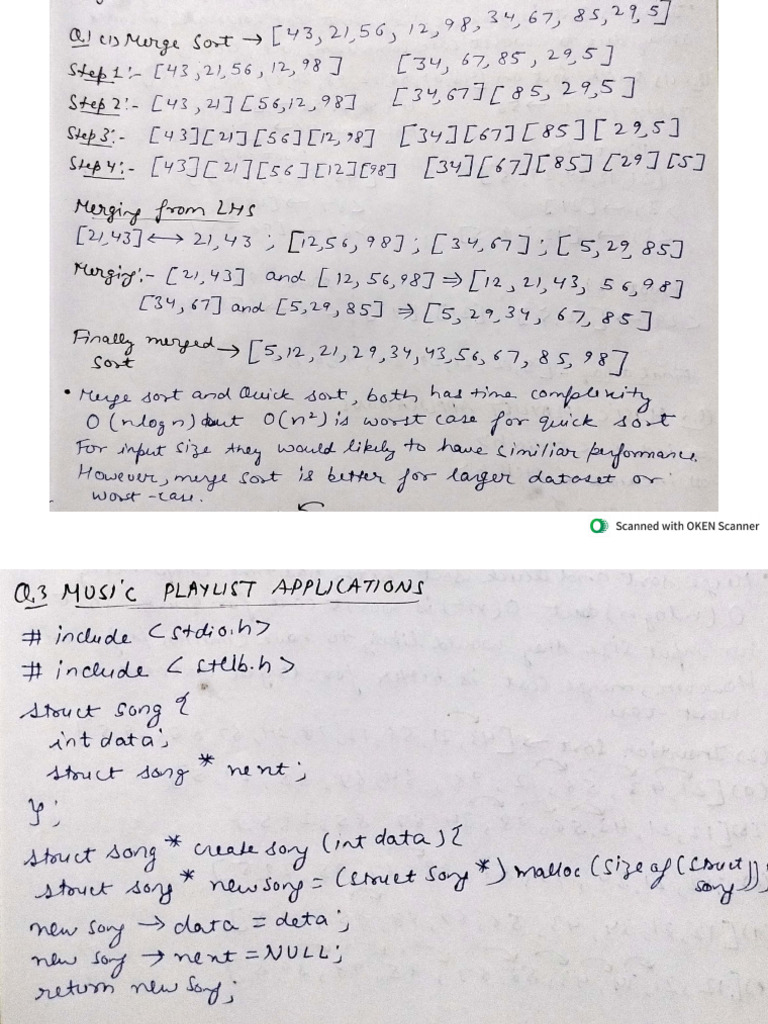 Q.1 (1) Merge Sort → [43, 21, 56, 12, 98, 34, 67, 85, 29, 5]
Step 1:- [43, 21, 56, 12, 98] [34, 67, 85, 29, 5]
Step 2:- [43, 21] [56, 12, 98] [34, 67] [85, 29, 5]
Step 3:- [43] [21] [56] [12, 98] [34] [67] [85] [29, 5]
Step 4:- [43] [21] [56] [12] [98] [34] [67] [85] [29] [5]
Merging from LHS
[21, 43] ↔ 21, 43 ; [12, 56, 98] ; [34, 67] ; [5, 29, 85]
Merging:- [21, 43] and [12, 56, 98] ⇒ [12, 21, 43, 56, 98]
[34, 67] and [5, 29, 85] ⇒ [5, 29, 34, 67, 85]
Finally merged → [5, 12, 21, 29, 34, 43, 56, 67, 85, 98]
sort
• Merge sort and Quick sort, both has time complexity
O(nlogn) but O(n²) is worst case for quick sort
For input size they would likely to have similiar performance.
However, merge sort is better for larger dataset or
worst-case.
Scanned with OKEN Scanner
Q.3 MUSIC PLAYLIST APPLICATIONS
# include <stdio.h>
# include <stlb.h>
struct song {
int data;
struct song * next;
};
struct song * create song (int data) {
struct song * new song = (struct song *) malloc (size of (struct song));
new song → data = deta;
new song → next = NULL;
return new song;